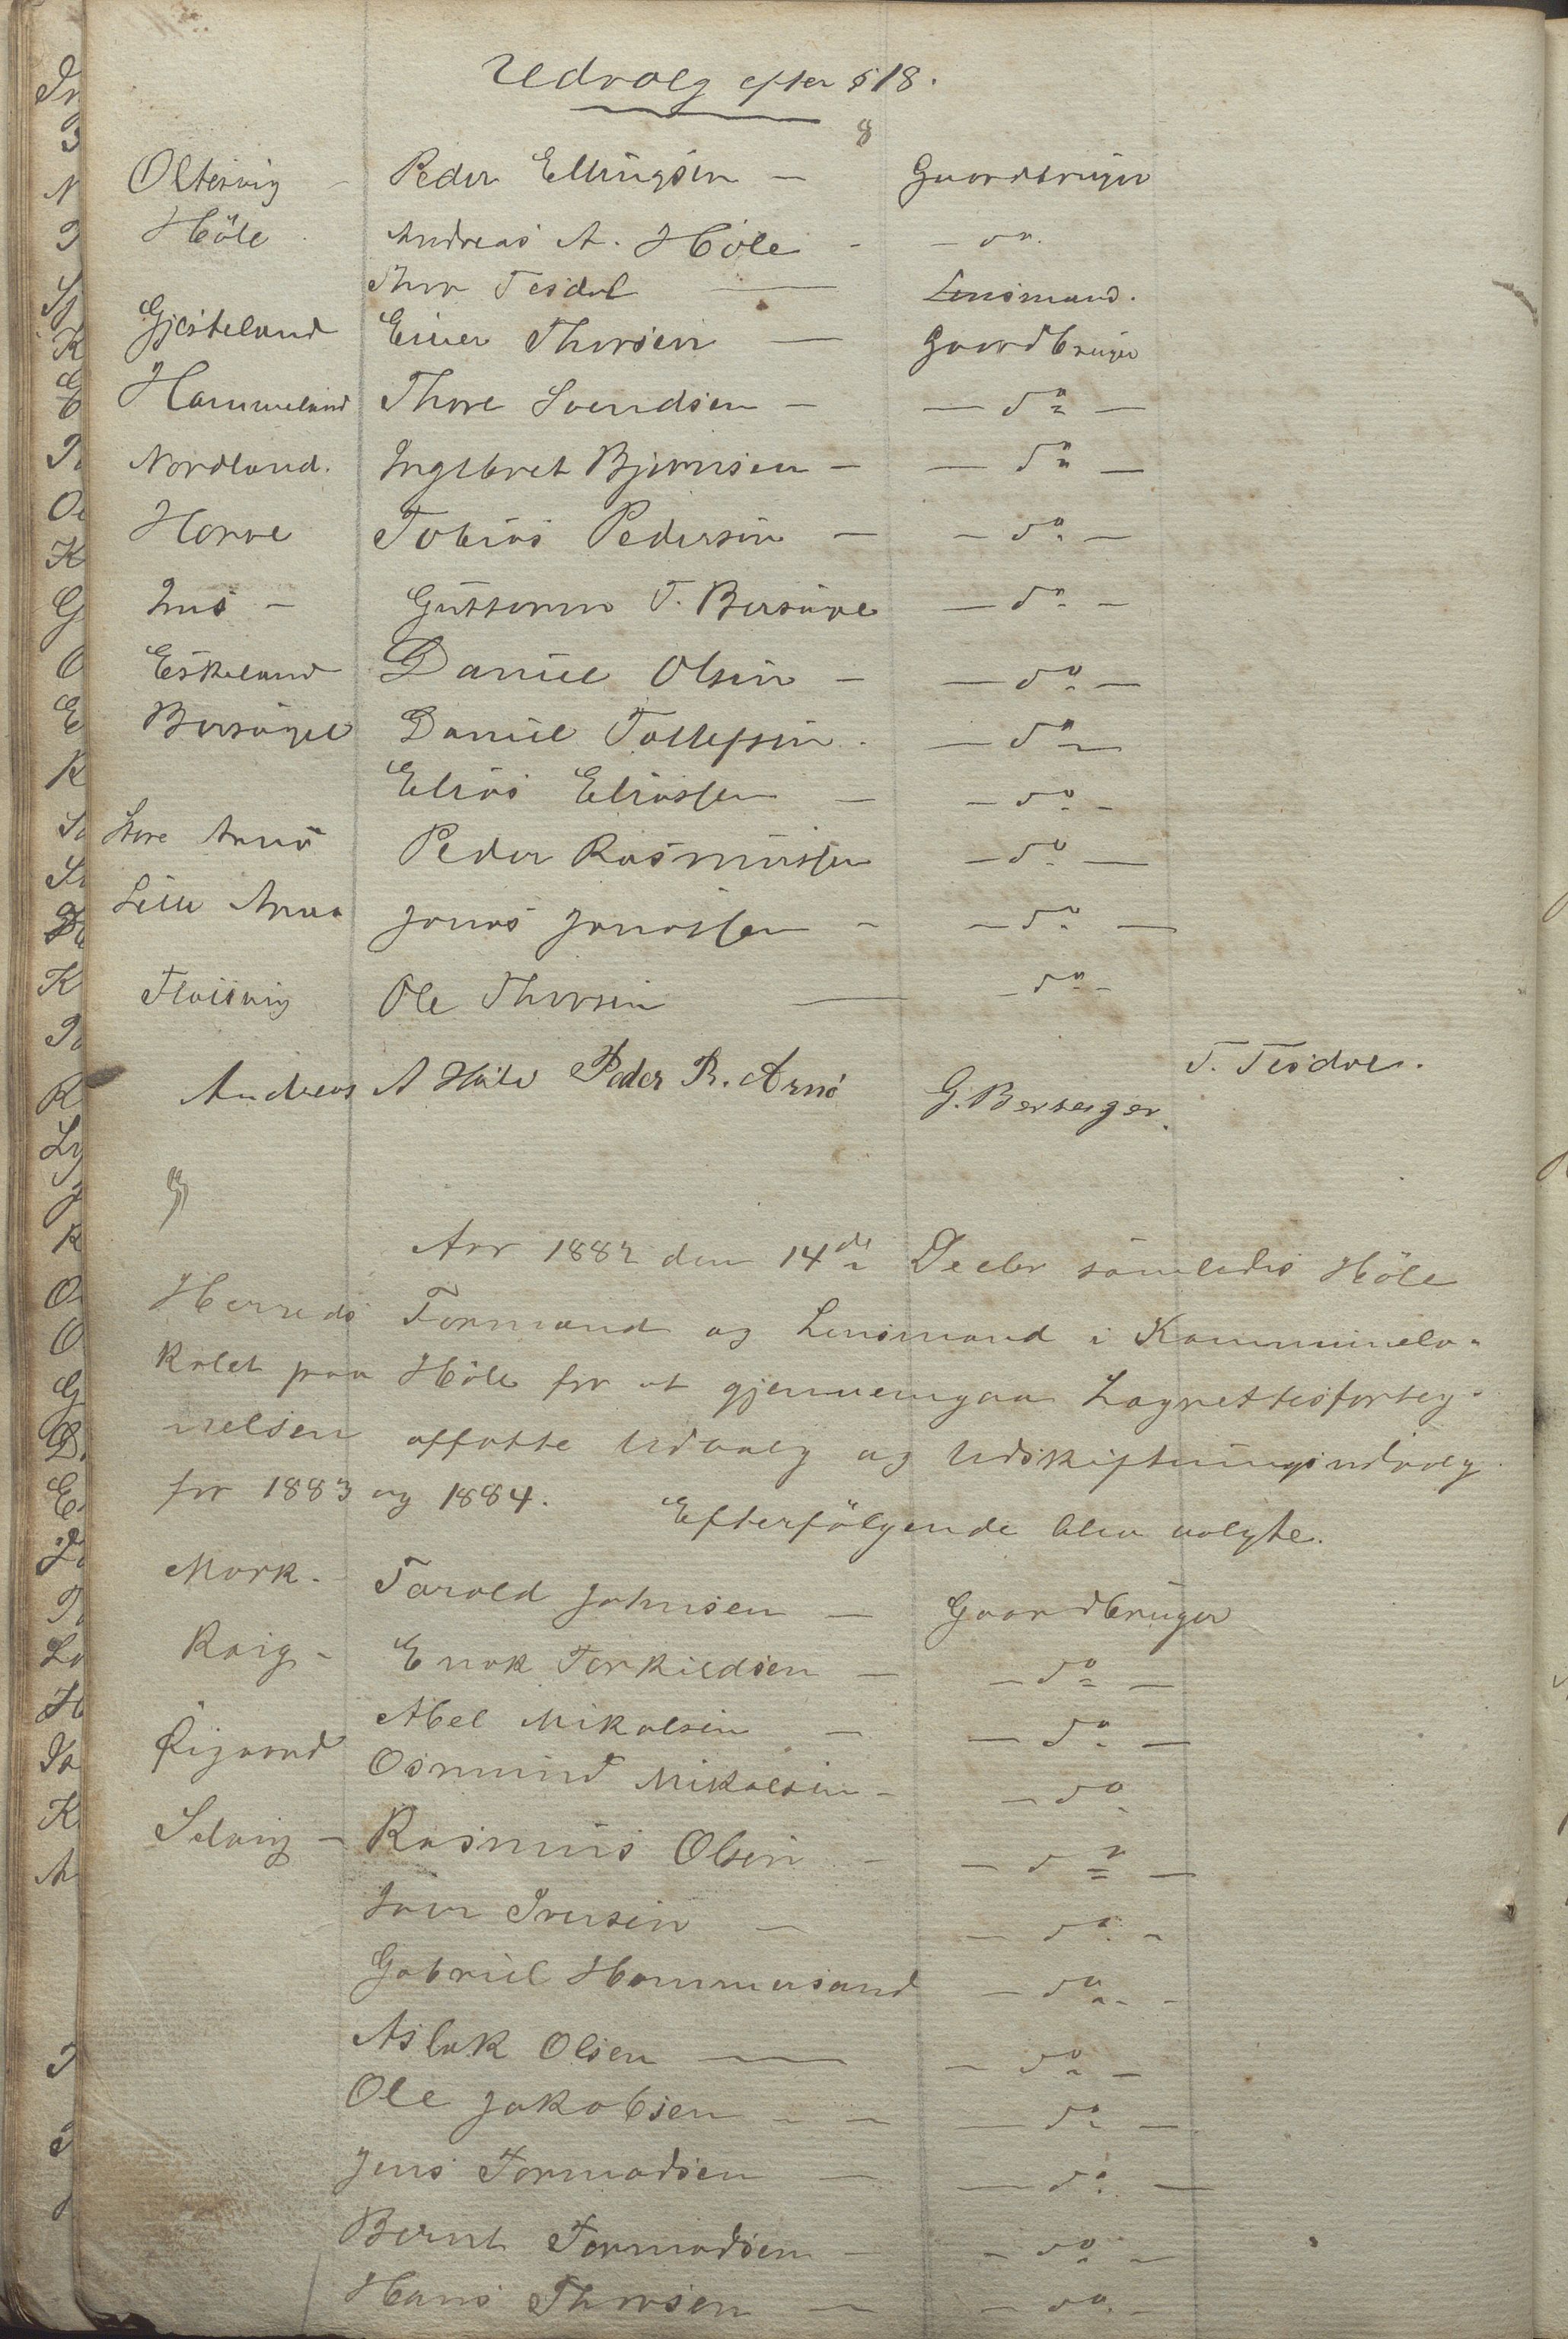 Udvalg efter § 18.
8
Oltesvig - Peder Ellingsen - Gaardbruger
Höle Andreas A. Höle - - do.
Thor Tesdal - Lensmand.
Gjesteland Einer Thorsen - Gaardbruger
Hammeland Thore Svendsen - - do -
Nordland. Ingebret Bjørnsen - - do -
Horve Tobias Pedersen - - do -
Ims - Guttorm T. Bersagel - do -
Eskeland Daniel Olsen - - do -
Bersagel Daniel Tollefsen. - do -
Elias Eliassen - - do -
Store Arnö Peder Rasmussen - do -
Lille Arnö Jonas Jonassen - - do -
Floisvig Ole Thorsen - - do -
Andreas A Höle Peder R. Arnö G. Bersagel. T. Tesdal.
Aar 1882 den 14de Decbr samledes Höle
Herreds Formand og Lensmand i Kommunelo-
kalet paa Höle for at gjennemgaa Lagrettesforteg-
nelsen affatte Udvalg og Udskiftningsudvalg
for 1883 og 1884. Efterfölgende blev valgte.
Mark. Tarald Johnsen - Gaardbruger
Raig - Enok Torkildsen - - do -
Abel Mikalsen - - do -
Osmund Mikalsen - - do
Selvig - Rasmus Olsen - - do -
Iver Iversen - - do -
Gabriel Hammersand - do -
Aslak Olsen - - do -
Ole Jakobsen - - - do -
Jens Tormodsen - - do -
Bernt Tormodsen - - do -
Hans Thorsen - - do -